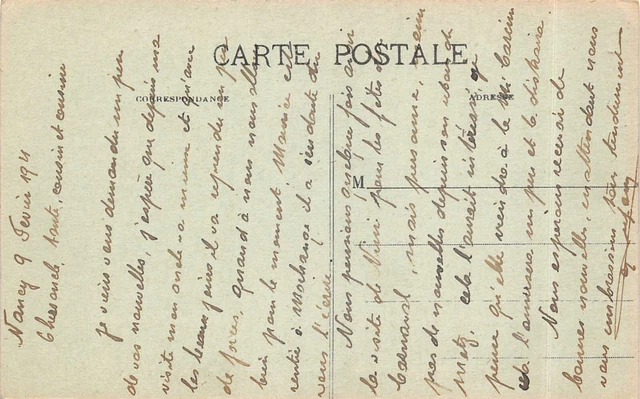 CARTE POSTALE
CORRESPONDANCE
ADRESSE
M
Nancy 9 Fevrier 1941
Chers oncle, tante, cousin et cousine
je viens vous demander un peu
de vos nouvelles, j'espère que depuis ma
visite mon oncle va mieux et qu'avec
les beaux jours il va reprendre un peu
de forces, quand à nous nous allons
bien pour le moment Maurice est
rentré à Morhange il a sans doute du
vous l'écrire
Nous pensions quelque fois avoir
la visite de pour les fêtes du
Carnaval, mais personne,
pas de nouvelles depuis son
Metz, cela l'aurait intéressé je
pense qu'elle viendra à la Mi Carême
cela l'amusera un peu et la distraira
Nous espérons recevoir de
bonnes nouvelles, en attendant nous
vous embrassons bien tendrement